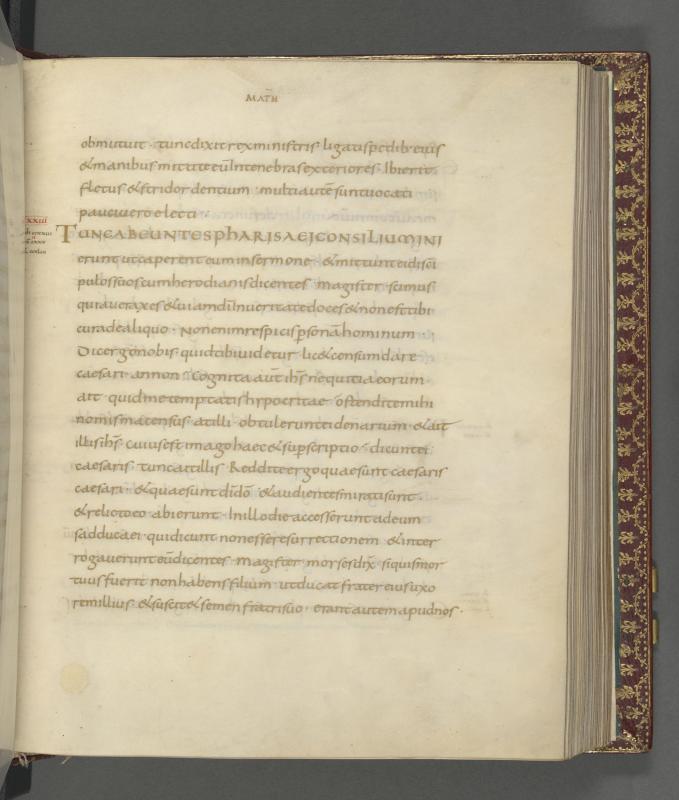 MATH
obmutuit · tunc dixit rex ministris ligatis pedib; eius
& manibus mittite eū In tenebras exteriores · Ibi erit
fletus & stridor dentium · multi autē sunt uocati
pauci uero electi ·
xxiii
TUNC ABEUNTES PHARISAEI CONSILIUM INI
erunt ut caperent eum in sermone · & mittunt ei disci
pulos suos cum herodianis dicentes · magister · scimus
quia uerax es & uiam dī In ueritate doces & non est tibi
cura de aliquo · Non enim respicis psonā hominum ·
Dic ergo nobis quid tibi uidetur lic& censum dare
caesari · an non · Cognita aut̄ ihs̄ nequitia eorum ·
ait · quid me temptatis hypocritae · ostendite mihi
nomisma census · at illi · obtulerunt ei denarium · & ait
illis ihs̄ · cuius est imago haec & supscriptio · dicunt ei
caesaris · tunc ait illis · Reddite ergo quae sunt caesaris
caesari · & quae sunt dī dō · & audientes mirati sunt ·
& relicto eo abierunt · In illo die accesserunt ad eum
sadducaei · qui dicunt non esse resurrectionem · & inter
rogauerunt eū dicentes · magister · moyses dix̄ · si quis mor
tuus fuerit non habens filium · ut ducat frater eius uxo
rem illius · & suscit& semen fratri suo · erant autem apud nos ·